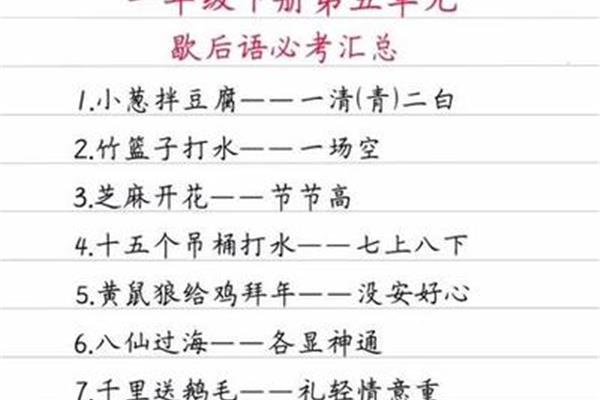 一年级下册第五单元
歇后语必考汇总
1.小葱拌豆腐——一清(青)二白
2.竹篮子打水——一场空
3.芝麻开花——节节高
4.十五个吊桶打水——七上八下
5.黄鼠狼给鸡拜年——没安好心
6.八仙过海——各显神通
7.千里送鹅毛——礼轻情意重